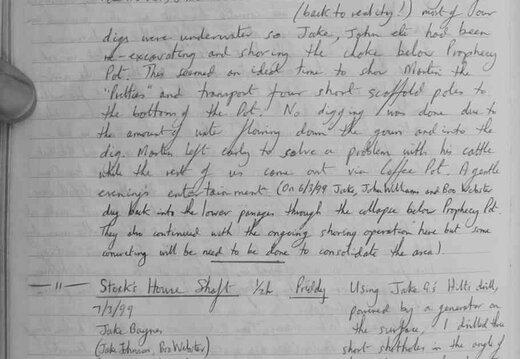 (back to reality!) most of our
digs were underwater so Jake, John etc had been
re-excavating and shoring the choke below Prophecy
Pot. This seemed an ideal time to show Martin the
"Pretties" and transport four short scaffold poles to
the bottom of the Pot. No digging was done due to
the amount of water flowing down the gour and into the
dig. Martin left early to solve a problem with his cattle
while the rest of us came out via Coffee Pot. A gentle
evening's entertainment (On 6/3/99 Jake, John Williams and Boo Webster
dug back into the lower passages through the collapse below Prophecy Pot.
They also continued with the ongoing shoring operation here but some
concreting will be need to be done to consolidate the area).
—11— Stock's House Shaft 1/2h Priddy Using Jake B's Hilti drill,
7/3/99 powered by a generator on
Jake Baynes the surface, I drilled three
(Jake Johnson, Boo Webster) short shotholes in the angle of